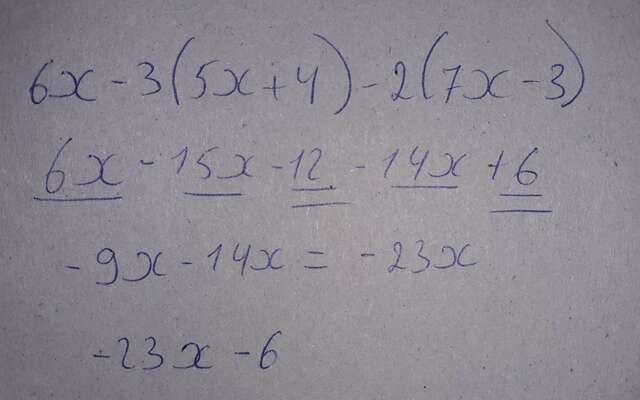 6x - 3(5x+4) - 2(7x-3)
6x - 15x - 12 - 14x + 6
- 9x - 14x = - 23x
- 23x - 6